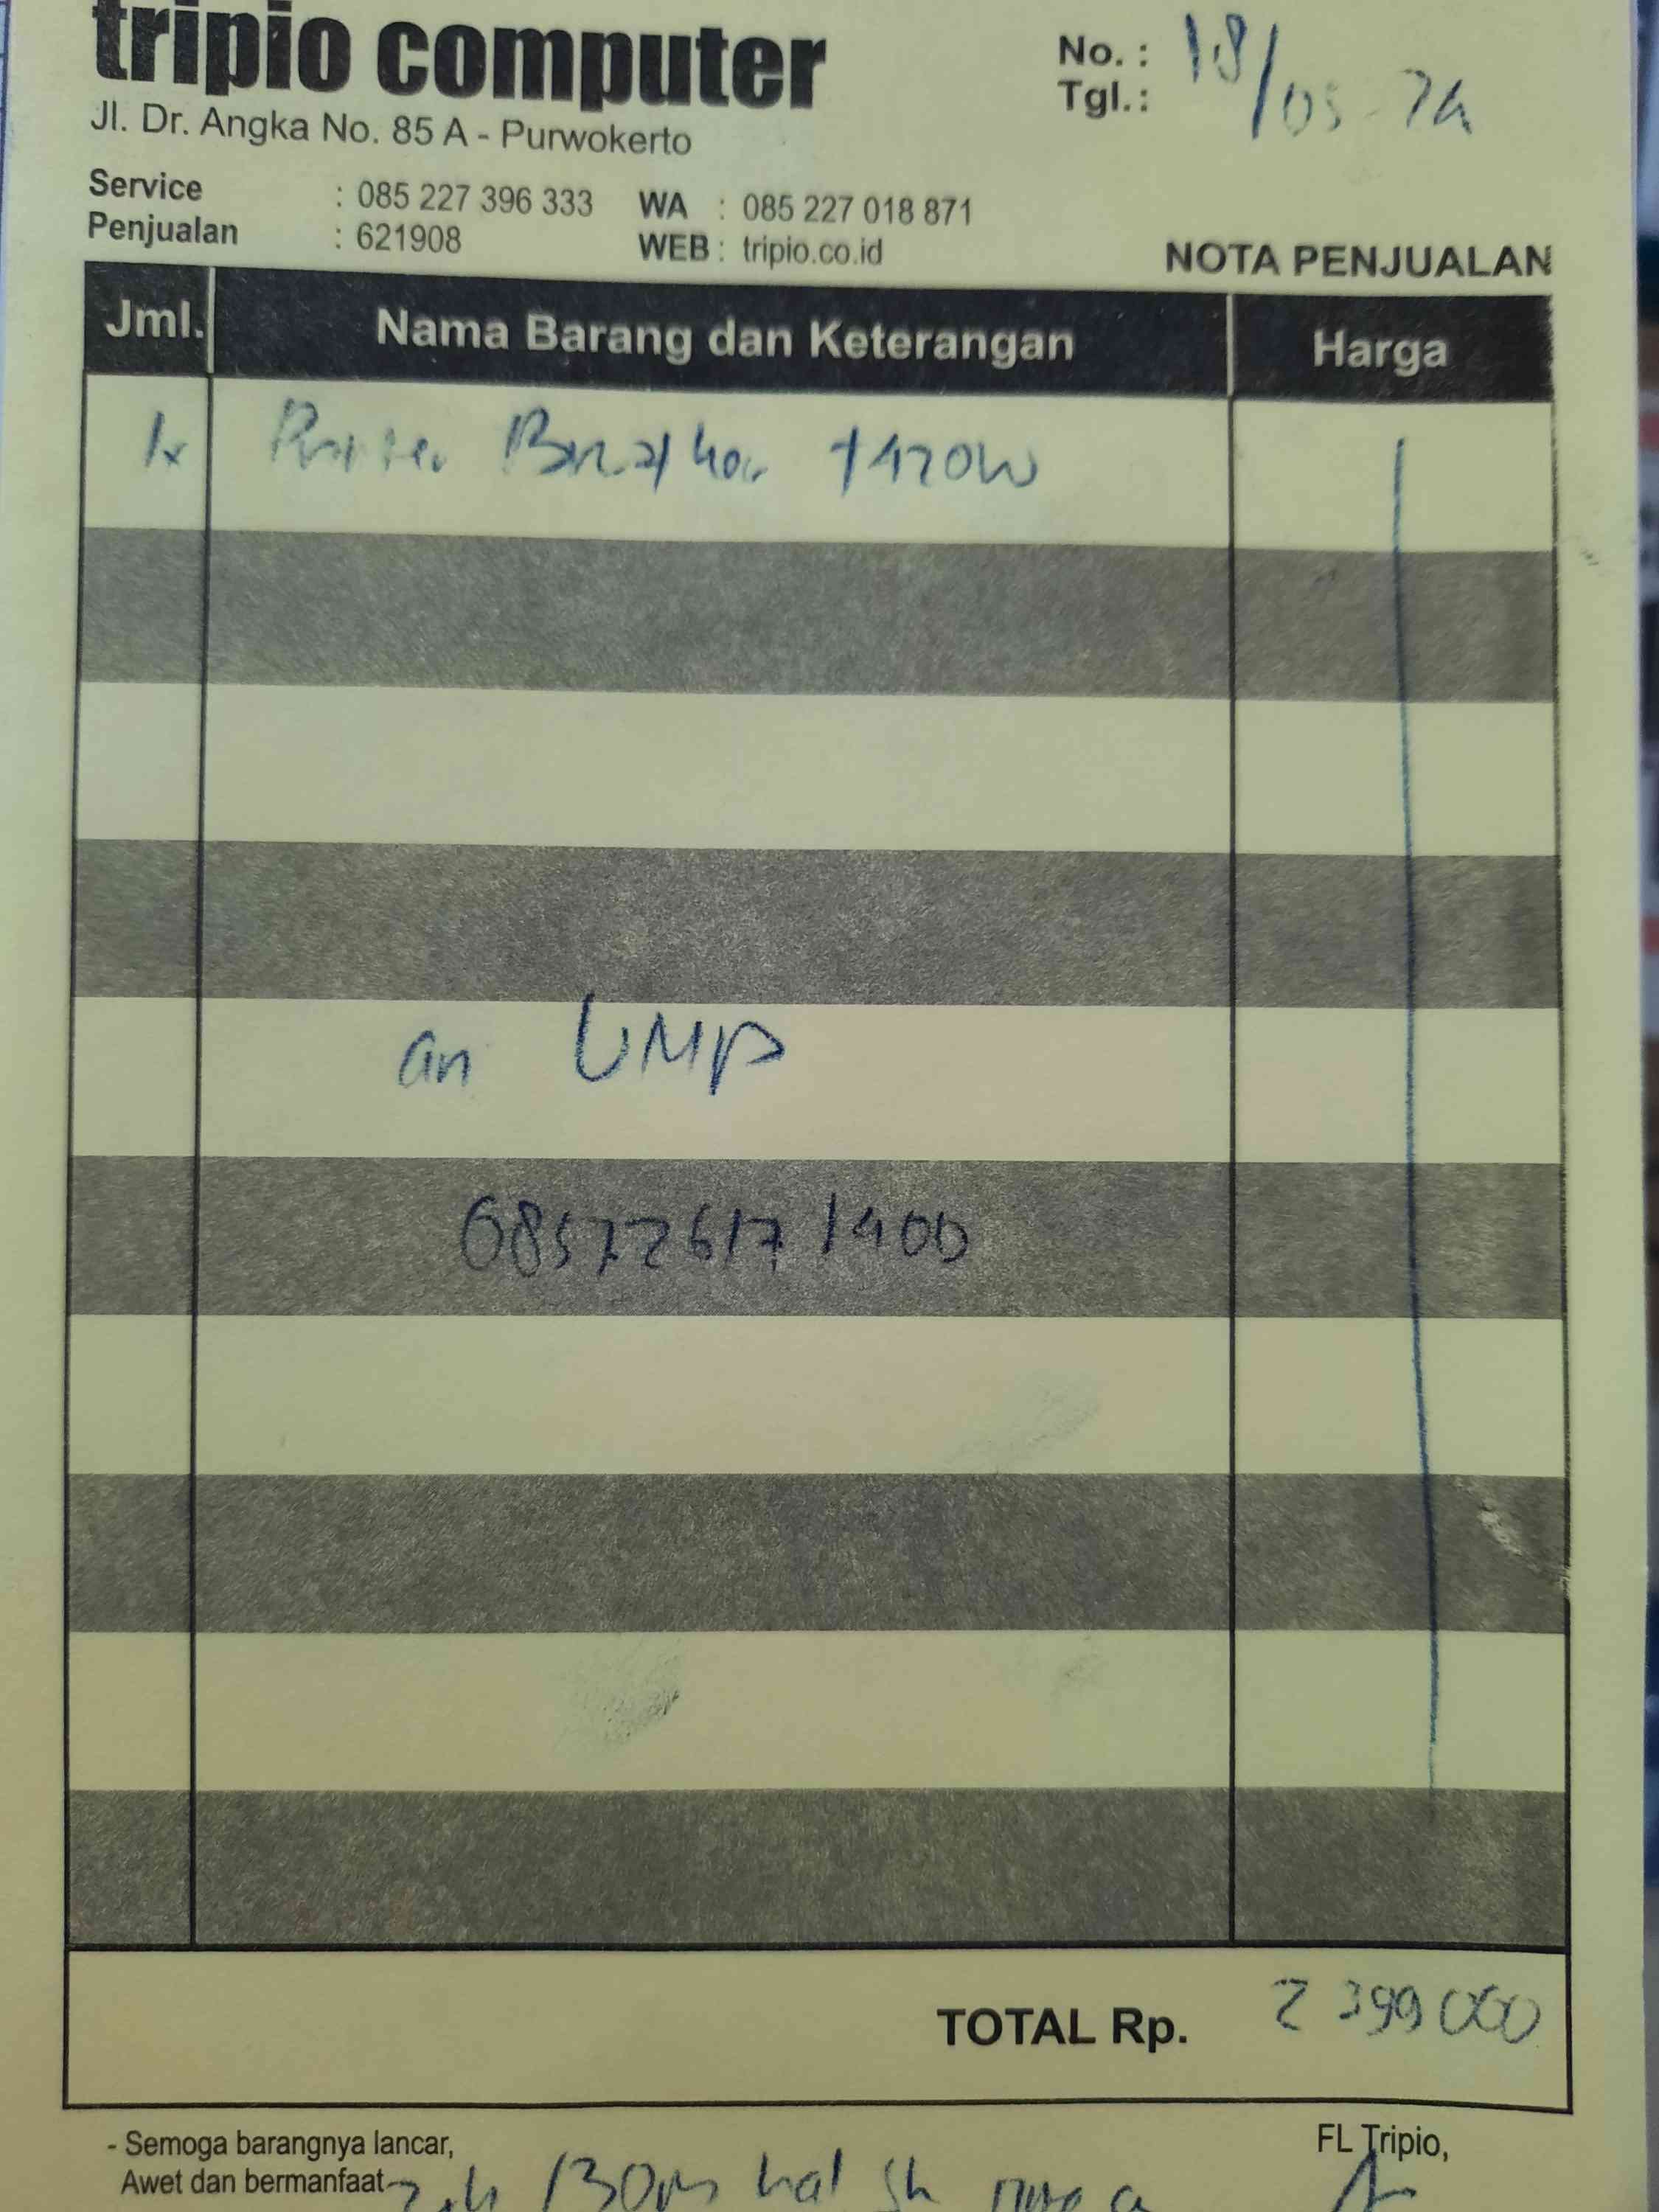 tripio computer
Jl. Dr. Angka No. 85 A - Purwokerto
No. :
Tgl. : 18/05-24
Service : 085 227 396 333 WA : 085 227 018 871
Penjualan : 621908 WEB : tripio.co.id
NOTA PENJUALAN
Jml. Nama Barang dan Keterangan Harga
1x Printer Brother T420W
an UMP
085726171400
TOTAL Rp. 2 399 000
- Semoga barangnya lancar,
Awet dan bermanfaat
FL Tripio,